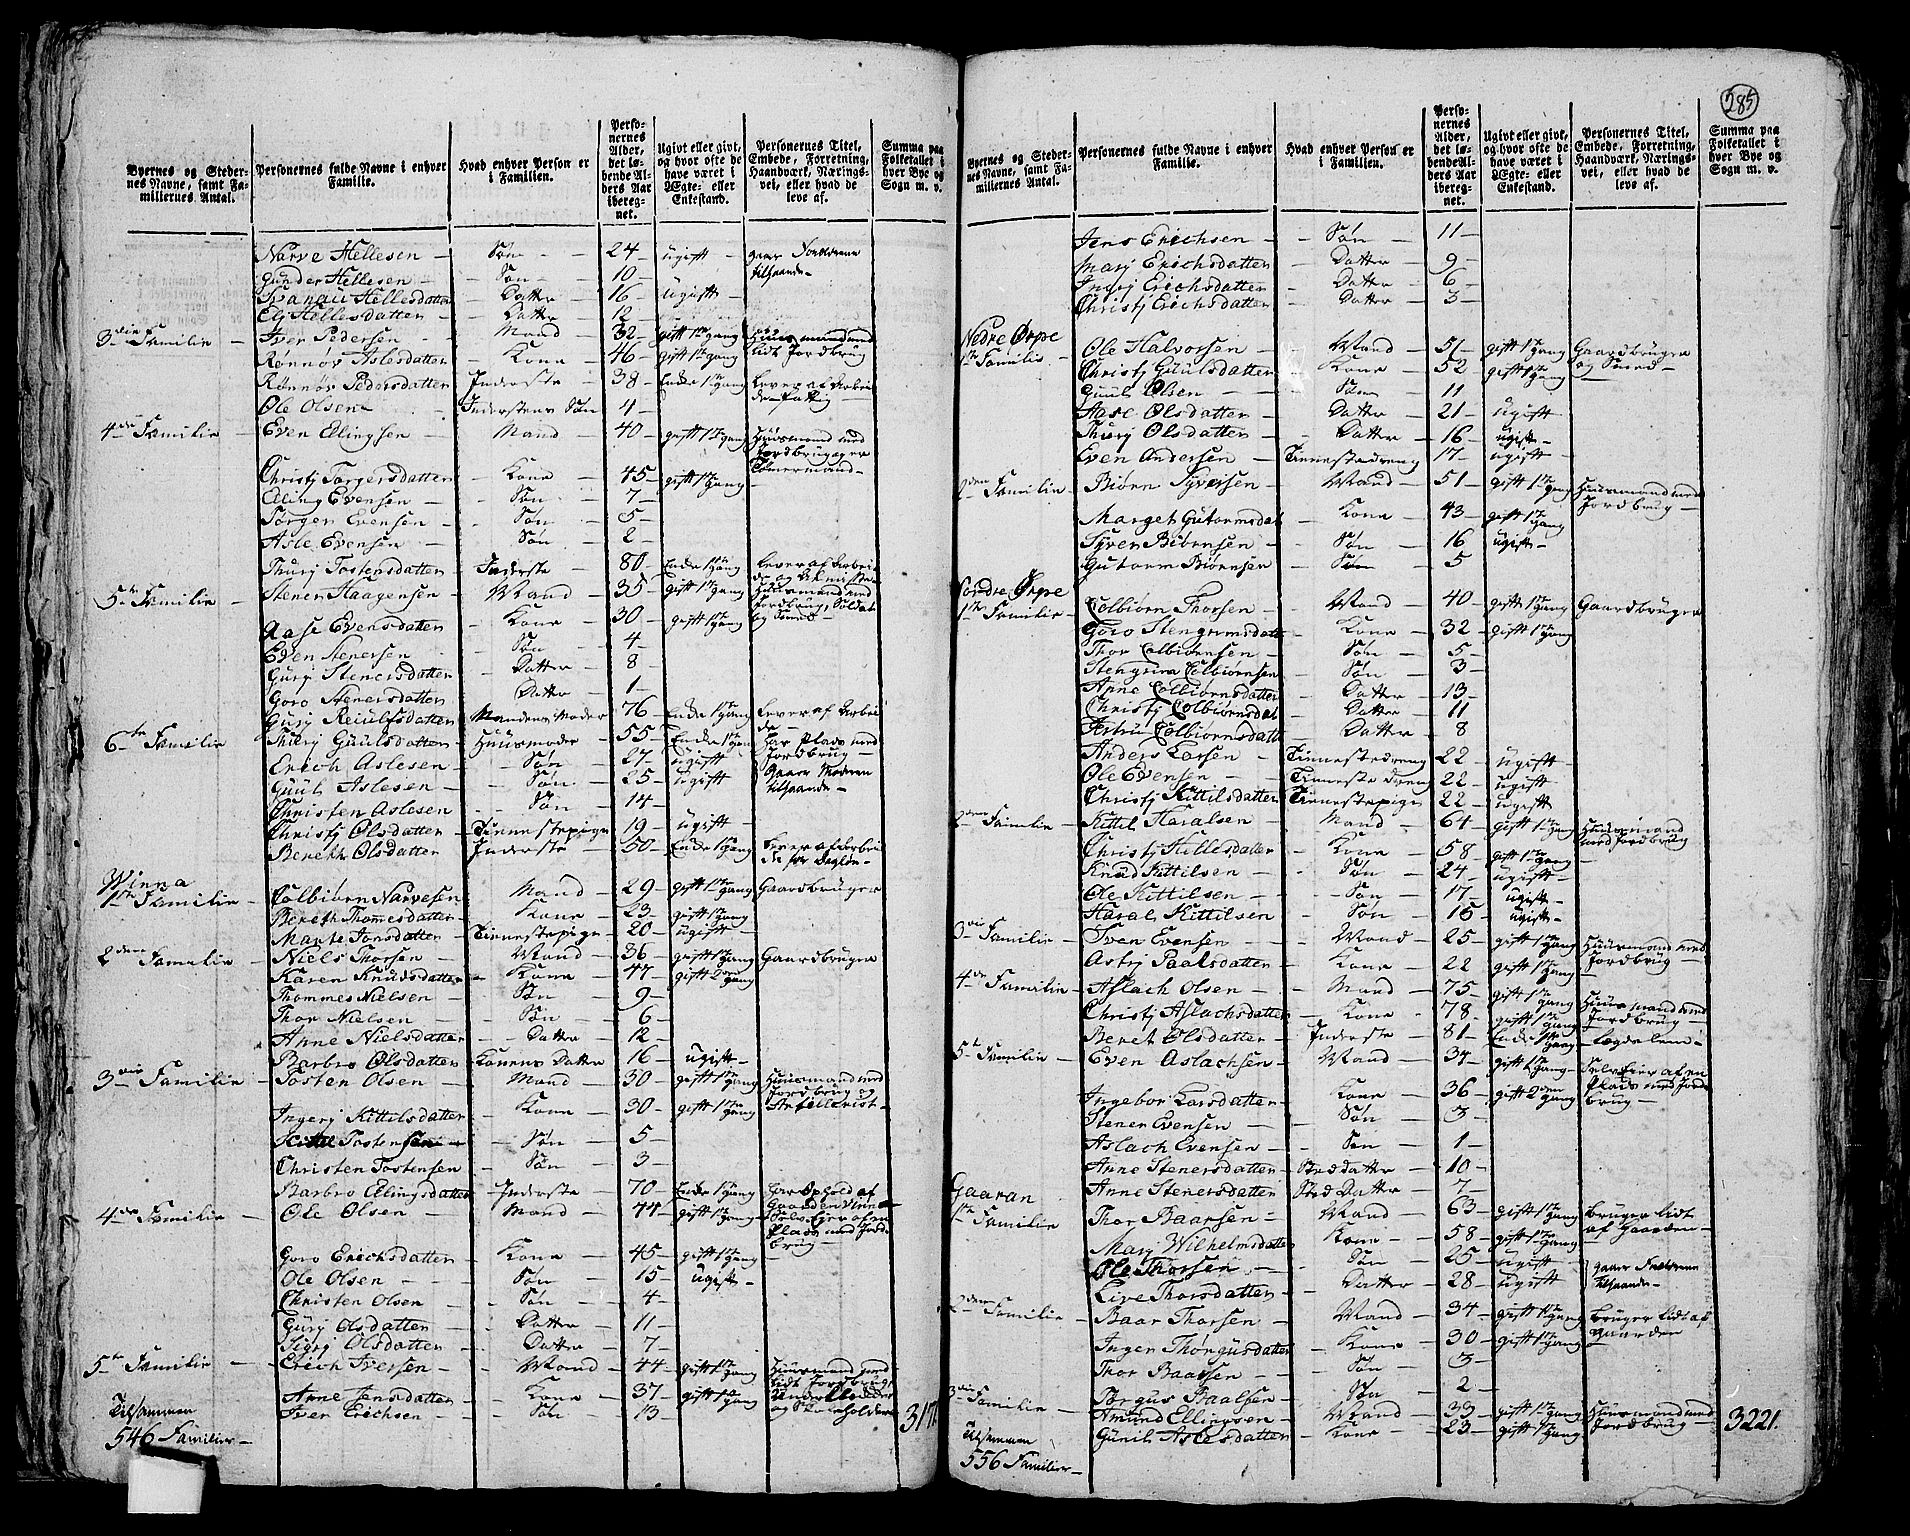 285
Byernes og Stedernes Navne, samt Familiernes Antal. | Personernes fulde Navne i enhver Familie. | Hvad enhver Person er i Familien. | Personernes Alder, det løbende Alders Aar iberegnet. | Ugivt eller givt, og hvor ofte de have været i Ægte- eller Enkestand. | Personernes Titel, Embede, Forretning, Haandværk, Næringsvei, eller hvad de leve af. | Summa paa Folketallet i hver Bye og Sogn m. v.
Narve Hellesen — Søn — 24 — ugift — gaar Forældrene
Gunder Hellesen — Søn — 10 — tilhaande —
Svanau Hellesdatter — Datter — 16 — ugift —
Elj Hellesdatter — Datter — 12 —
3die Familie — Iver Pedersen — Mand — 32 — gift 1te gang Huusmand med
Rønnøv Aslesdatter — Kone — 46 — gift 1te gang lidt Jordbrug
Rønnøv Pedersdatter — Inderste — 38 — Enke 1te gang Lever af Arbei
Ole Olsen — Inderstens Søn 4 — de fattig
4de Familie — Even Ellingsen — Mand — 40 — gift 1te gang Huusmand med
Jordbrug og er
Christj Torgersdatter — Kone — 45 — gift 1te gang Tømermand —
Elling Evensen — Søn — 7 —
Torger Evensen — Søn — 5 —
Asle Evensen — Søn — 2 —
Thurj Tostensdatter — Inderste — 80 — Enke 1te gang Lever af Arbei
5te Familie — Stener Haagensen — Mand — 35 — gift 1te gang Huusmand med
Jordbrug, Soldat
Aase Evensdatter — Kone — 30 — gift 1te gang
Even Stenersen — Søn — 4 —
Gurj Stenersdatter — Datter — 8 —
Goro Stenersdatter — Datter — 1 —
Gurj Reiulfsdatter — Mandens Moder 76 — Enke 1te gang Lever af Arbei
6te Familie — Thurj Guulsdatter — Huusmoder — 55 — Enke 1te gang har Plads med
Erich Aslesen — Søn — 27 — ugift Jordbrug —
Guul Aslesen — Søn — 25 — ugift gaaer Moderen
Christen Aslesen — Søn — 14 — tilhaande —
Christj Olsdatter — Tienestepige — 19 — ugift —
Bereth Olsdatter — Inderste — 50 — Enke 1te gang Lever af Arbei
de for Dagløn —
Winna
1te Familie — Colbiørn Narvesen — Mand — 29 — gift 1te gang Gaardbruger
Bereth Thomesdatter — Kone — 23 — gift 1te gang
Marte Jonsdatter — Tienestepige — 20 — ugift —
2den Familie — Niels Thorsen — Mand — 36 — gift 1te gang Gaardbruger
Karen Knudsdatter — Kone — 47 — gift 2den gang
Thommes Nielsen — Søn — 9 —
Thor Nielsen — Søn — 6 —
Anne Nielsdatter — Datter — 12 —
Barbro Olsdatter — Konens Datter — 16 — ugift —
3die Familie — Tosten Olsen — Mand — 30 — gift 1te gang Huusmand med
Jordbrug og
Ingerj Kittilsdatter — Kone — 30 — gift 1te gang Artellerist —
Kittil Tostensen — Søn — 5 —
Christen Tostensen — Søn — 3 —
Barbro Ellingsdatter — Inderste — 70 — Enke 1te gang har Ophold af
Gaarden Winna
4de Familie — Ole Olsen — Mand — 44 — gift 1te gang — Selv Eier af en
Plads med Jord
brug —
Goro Erichsdatter — Kone — 45 — gift 1te gang
Ole Olsen — Søn — 15 — ugift —
Christen Olsen — Søn — 4 —
Gurj Olsdatter — Datter — 11 —
Sigrj Olsdatter — Datter — 7 —
5te Familie — Erich Iversen — Mand — 44 — gift 1te gang Huusmand med
lidt Jordbrug
Anne Jensdatter — Kone — 37 — gift 1te gang
Iver Erichsen — Søn — 13 — og Skoleholder
Tilsammen
546 Familier —
Byernes og Stedernes Navne, samt Familiernes Antal. | Personernes fulde Navne i enhver Familie. | Hvad enhver Person er i Familien. | Personernes Alder, det løbende Alders Aar iberegnet. | Ugivt eller givt, og hvor ofte de have været i Ægte- eller Enkestand. | Personernes Titel, Embede, Forretning, Haandværk, Næringsvei, eller hvad de leve af. | Summa paa Folketallet i hver Bye og Sogn m. v.
Jens Erichsen — Søn — 11 —
Marj Erichsdatter — Datter — 9 —
Ingrj Erichsdatter — Datter — 6 —
Christj Erichsdatter — Datter — 3 —
Nedre Ørpe
1te Familie — Ole Halvorsen — Mand — 51 — gift 1te gang Gaardbruger
Christj Guulsdatter — Kone — 52 — gift 1te gang og Smed —
Guul Olsen — Søn — 11
Aase Olsdatter — Datter — 21 — ugift
Thurj Olsdatter — Datter — 16 — ugift —
Even Andersen — Tienestedreng 17 — ugift —
2den Familie — Biørn Syversen — Mand — 51 — gift 1te gang Huusmand med
Jordbrug —
Marget Gutormsdat — Kone — 43 — gift 1te gang
Syver Biørnsen — Søn — 16 ugift —
Gutorm Biørnsen — Søn — 5
Søndre Ørpe
1te Familie — Colbiørn Thorsen — Mand — 40 — gift 1te gang Gaardbruger
Goro Stengrimsdatt — Kone — 32 — gift 1te gang
Thor Colbiørnsen — Søn — 5 —
Stengrim Colbiørnsen — Søn — 3 —
Anne Colbiørnsdatter — Datter — 13 —
Christj Colbiørnsdat — Datter — 11
Astrü Colbiørnsdatt — Datter — 8
Anders Larsen — Tienestedreng 22 — ugift —
Ole Evensen — Tienestedreng 22 — ugift
Christj Kittilsdatter — Tienestepige — 22 — ugift
2den Familie — Kittil Haralsen — Mand — 64 — gift 1te gang Huusmand
Christj Hellesdatter — Kone — 58 — gift 1te gang med Jordbrug
Knud Kittilsen — Søn — 24 — ugift —
Ole Kittilsen — Søn — 17 — ugift —
Haral Kittilsen — Søn — 15 — ugift —
3die Familie — Sven Evensen — Mand — 25 — gift 1te gang Huusmand med
Astrj Paalsdatter — Kone — 22 — gift 1te gang Jordbrug —
4de Familie — Aslach Olsen — Mand — 75 — gift 1te gang Huusmand med
Christj Aslachsdatter — Kone — 78 — gift 1te gang Jordbrug —
Beret Olsdatter — Inderste — 81 — Enke 1te gang — Lægdslem —
5te Familie — Even Aslachsen — Mand — 34 — gift 1te gang — Selv Eier af en
Plads med Jord
Ingebor Larsdatter — Kone — 36 — gift 2den gang brug —
Stener Evensen — Søn — 3 —
Aslach Evensen — Søn — 1 —
Anne Stenersdatter — Sted datter — 10 —
Anne Stenersdatter — Sted Datter — 7 —
Gaaran
1te Familie — Thor Baarsen — Mand — 63 — gift 1te gang bruger lidt
Marj Wilhelmsdatte — Kone — 58 — gift 1te gang af Gaarden —
Ole Thorsen — Søn — 25 — ugift gaaer Forældrene
Live Thorsdatter — Datter — 28 — ugift tilhaande —
2den Familie — Baar Thorsen — Mand — 34 — gift 1te gang bruger lidt af
Inger Thorgusdatter — Kone — 30 — gift 1te gang Gaarden
Thor Baarsen — Søn — 3 —
Torgus Baarsen — Søn — 2 —
3die Familie — Amund Ellingsen — Mand — 33 — gift 1te gang Huusmand med
Gunil Aslesdatter — Kone — 23 — gift 1te gang Jordbrug — 3221.
Tilsammen
556 Familier —